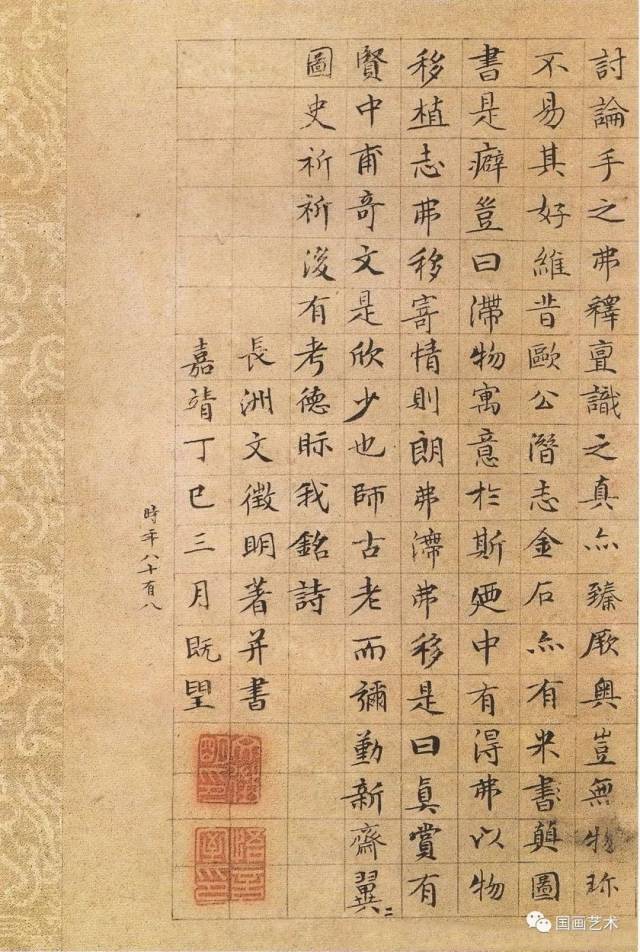 討論手之弗釋亶識之真亦臻厥奧豈無物珎
不易其好維昔歐公潛志金石亦有米書顛圖
書是癖豈曰滯物寓意於斯廼中有得弗以物
移植志弗移寄情則朗弗滯弗移是曰眞賞有
賢中甫奇文是欣少也師古老而彌勤新齋翼二
圖史祈祈後有考德眎我銘詩
長洲文徵明著并書
嘉靖丁巳三月既望
時年八十有八
文徵明印
悟言室印
国画艺术